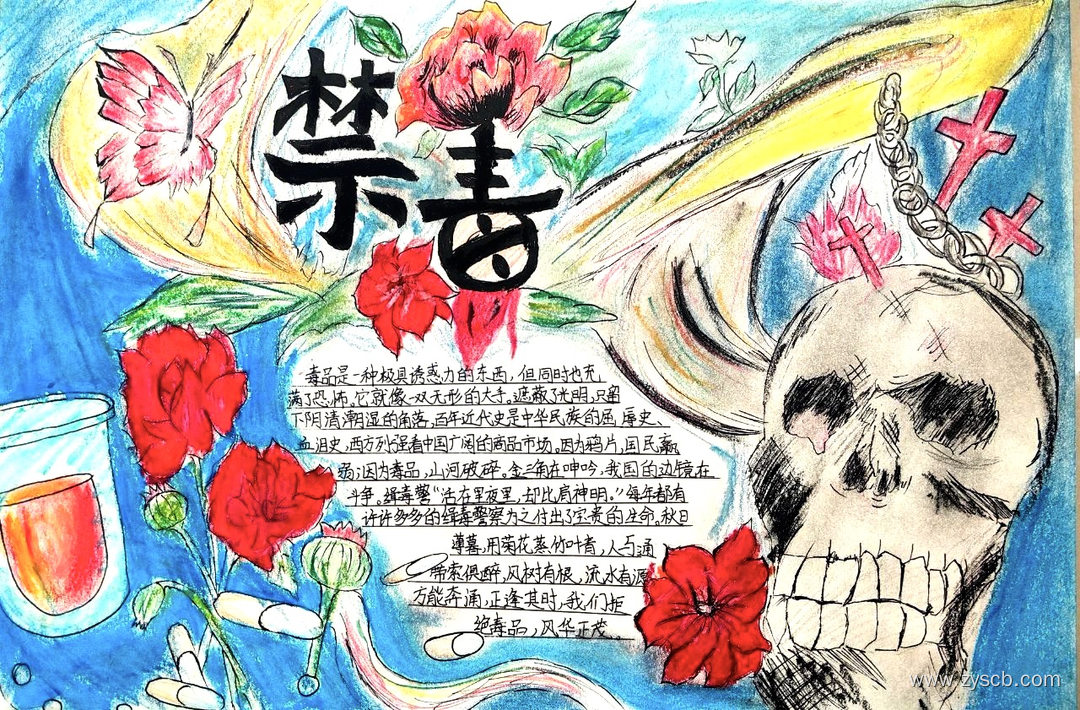 禁毒
毒品是一种极具诱惑力的东西,但同时也充
满了恐怖,它就像一双无形的大手。遮蔽了光明,只留
下阴清潮湿的角落,百年近代史是中华民族的屈辱史、
血泪史,西方列强看中国广阔的商品市场。因为鸦片,国民羸
弱;因为毒品,山河破碎。金三角在呻吟,我国的边镜在
斗争。缉毒警“活在黑夜里,却比肩神明。”每年都有
许许多多的缉毒警察为之付出了宝贵的生命。秋日
薄暮,用菊花蒸竹叶青,人与通
帝索俱醉,风树有根,流水有源
方能奔涌,正逢其时,我们拒
绝毒品,风华正茂。
www.zyscb.com